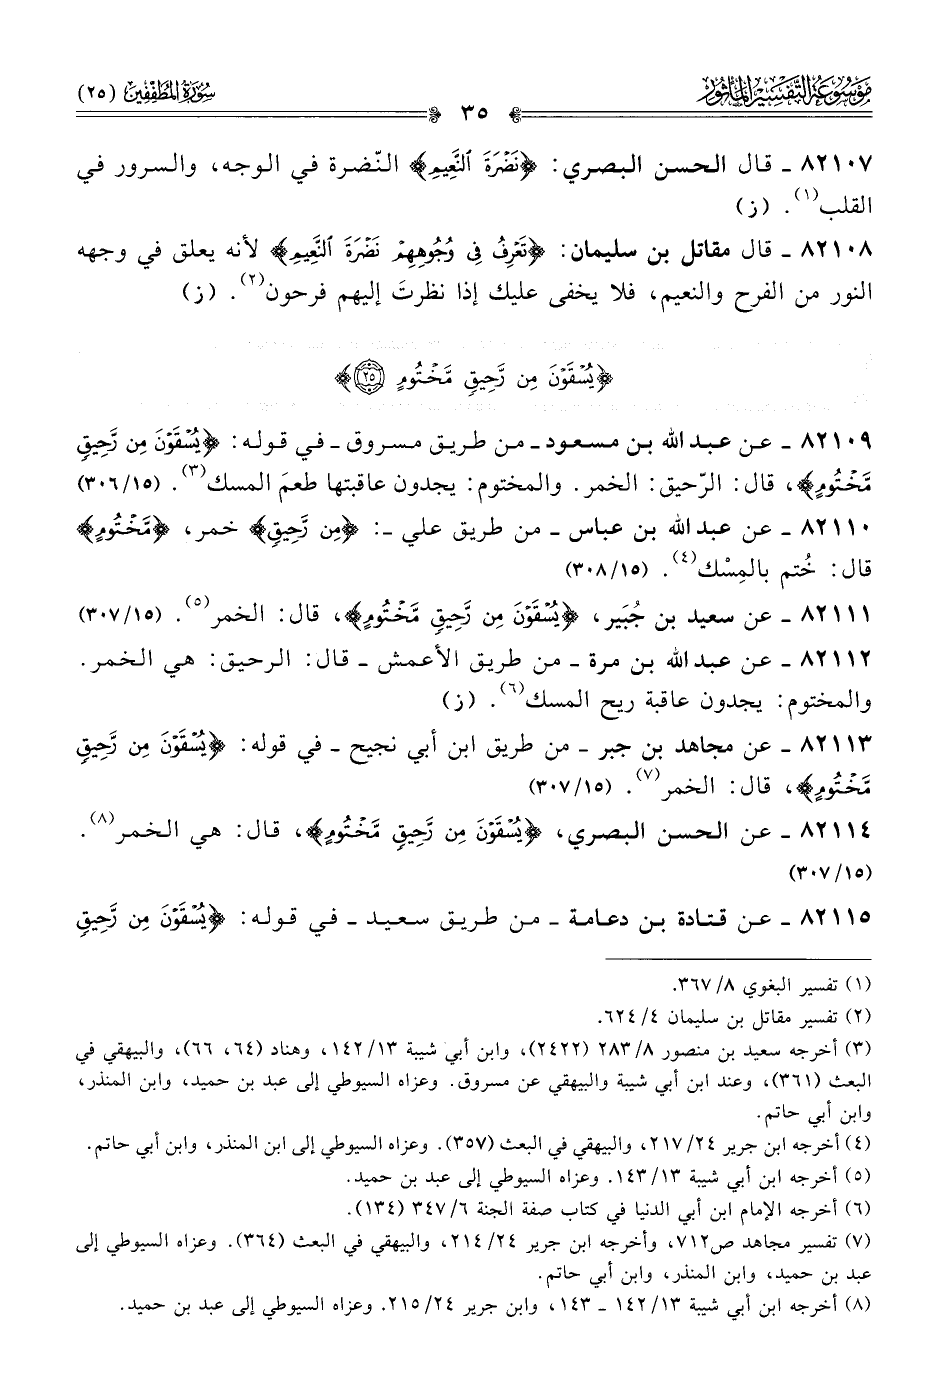 مَوْسُوعَةُ التَّفْسِيرِ المَأْثُورِ
سُورَةُ المُطَفِّفِينَ (٢٥)
٣٥
٨٢١٠٧ ـ قال الحسن البصري: ﴿نَضْرَةَ ٱلنَّعِيمِ﴾ النّضرة في الوجه، والسرور في
القلب(١). (ز)
٨٢١٠٨ ـ قال مقاتل بن سليمان: ﴿تَعْرِفُ فِى وُجُوهِهِمْ نَضْرَةَ ٱلنَّعِيمِ﴾ لأنه يعلق في وجهه
النور من الفرح والنعيم، فلا يخفى عليك إذا نظرتَ إليهم فرحون(٢). (ز)
﴿يُسْقَوْنَ مِن رَّحِيقٍ مَّخْتُومٍ ٢٥﴾
٨٢١٠٩ ـ عن عبد الله بن مسعود ـ من طريق مسروق ـ في قوله: ﴿يُسْقَوْنَ مِن رَّحِيقٍ
مَّخْتُومٍ﴾، قال: الرّحيق: الخمر. والمختوم: يجدون عاقبتها طعمَ المسك(٣). (٣٠٦/١٥)
٨٢١١٠ ـ عن عبد الله بن عباس ـ من طريق علي ـ: ﴿مِن رَّحِيقٍ﴾ خمر، ﴿مَّخْتُومٍ﴾
قال: خُتم بالمِسْك(٤). (٣٠٨/١٥)
٨٢١١١ ـ عن سعيد بن جُبَير، ﴿يُسْقَوْنَ مِن رَّحِيقٍ مَّخْتُومٍ﴾، قال: الخمر(٥). (٣٠٧/١٥)
٨٢١١٢ ـ عن عبد الله بن مرة ـ من طريق الأعمش ـ قال: الرحيق: هي الخمر.
والمختوم: يجدون عاقبة ريح المسك(٦). (ز)
٨٢١١٣ ـ عن مجاهد بن جبر ـ من طريق ابن أبي نجيح ـ في قوله: ﴿يُسْقَوْنَ مِن رَّحِيقٍ
مَّخْتُومٍ﴾، قال: الخمر(٧). (٣٠٧/١٥)
٨٢١١٤ ـ عن الحسن البصري، ﴿يُسْقَوْنَ مِن رَّحِيقٍ مَّخْتُومٍ﴾، قال: هي الخمر(٨).
(٣٠٧/١٥)
٨٢١١٥ ـ عن قتادة بن دعامة ـ من طريق سعيد ـ في قوله: ﴿يُسْقَوْنَ مِن رَّحِيقٍ
(١) تفسير البغوي ٨/ ٣٦٧.
(٢) تفسير مقاتل بن سليمان ٤/ ٦٢٤.
(٣) أخرجه سعيد بن منصور ٨/ ٢٨٣ (٢٤٢٢)، وابن أبي شيبة ١٣/ ١٤٢، وهناد (٦٤، ٦٦)، والبيهقي في
البعث (٣٦١)، وعند ابن أبي شيبة والبيهقي عن مسروق. وعزاه السيوطي إلى عبد بن حميد، وابن المنذر،
وابن أبي حاتم.
(٤) أخرجه ابن جرير ٢٤/ ٢١٧، والبيهقي في البعث (٣٥٧). وعزاه السيوطي إلى ابن المنذر، وابن أبي حاتم.
(٥) أخرجه ابن أبي شيبة ١٣/ ١٤٣. وعزاه السيوطي إلى عبد بن حميد.
(٦) أخرجه الإمام ابن أبي الدنيا في كتاب صفة الجنة ٦/ ٣٤٧ (١٣٤).
(٧) تفسير مجاهد ص٧١٢، وأخرجه ابن جرير ٢٤/ ٢١٤، والبيهقي في البعث (٣٦٤). وعزاه السيوطي إلى
عبد بن حميد، وابن المنذر، وابن أبي حاتم.
(٨) أخرجه ابن أبي شيبة ١٣/ ١٤٢ ـ ١٤٣، وابن جرير ٢٤/ ٢١٥. وعزاه السيوطي إلى عبد بن حميد.